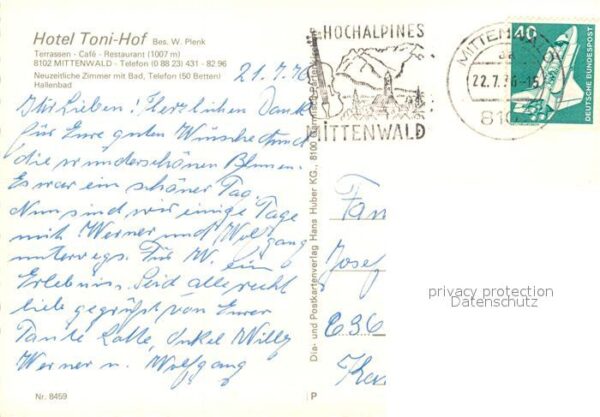 Hotel Toni-Hof Bes. W. Plenk
Terrassen - Café - Restaurant (1007 m)
8102 MITTENWALD - Telefon (0 88 23) 431 - 82 96
Neuzeitliche Zimmer mit Bad, Telefon (50 Betten)
Hallenbad
21.7.76
Ihr Lieben! Herzlichen Dank
für Eure guten Wünsche und
die wunderschönen Blumen.
Es war ein schöner Tag.
Nun sind wir einige Tage
mit Werner und Wolfgang
unterwegs. Für W. ein
Erlebnis. Seid alle recht
lieb gegrüßt von Eurer
Tante Lotte, Onkel Willy
Werner u. Wolfgang
Nr. 8459
Dia- und Postkartenverlag Hans Huber KG., 8100
P
HOCHALPINES
MITTENWALD
MITTENWALD
22.7.76-15
810
40
DEUTSCHE BUNDESPOST
Fam
Josef
636
privacy protection
Datenschutz